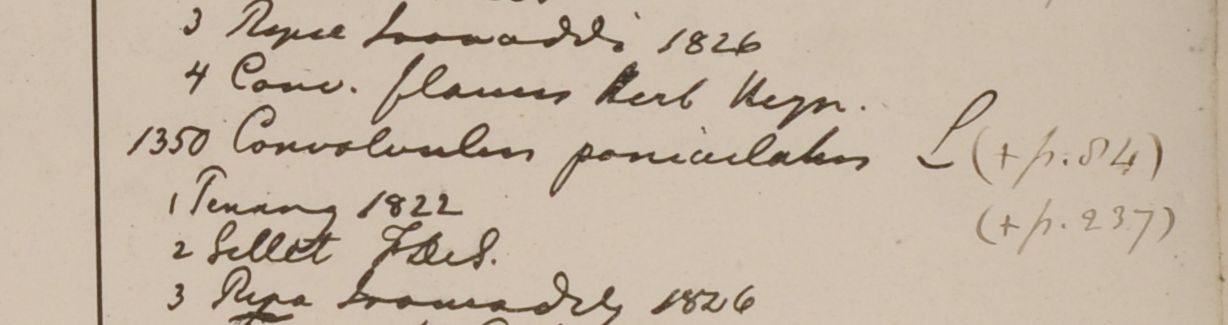 3 Ripae Irawaddi 1826
4 Conv. flavus Herb Heyn.
1350 Convolvulus paniculatus L (+ p. 84)
1 Penang 1822 (+ p. 237)
2 Sillet F.DeS.
3 Ripa Irawaddy 1826